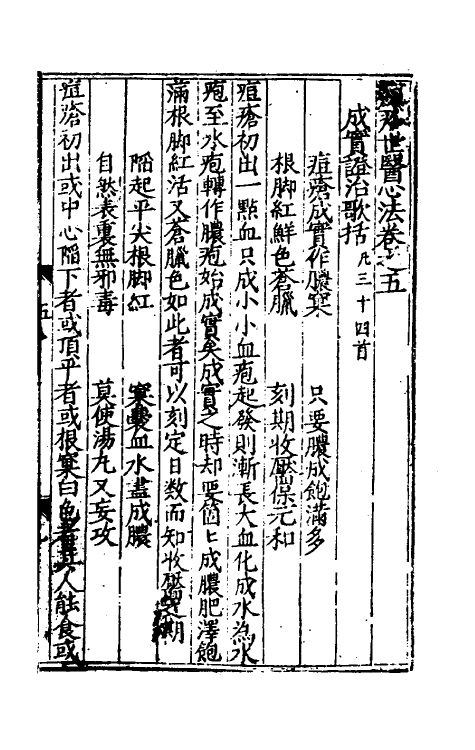 痘疹世醫心法卷之五
成實證治歌括凡三十四首
痘瘡成實作膿窠 只要膿成飽滿多
根脚紅鮮色蒼臘 刻期收靨保元和
痘瘡初出一點血只成小小血疱起發則漸長大血化成水為水
疱至水疱轉作膿疱始成實矣成實之時却要箇〻成膿肥澤飽
滿根脚紅活又蒼臘色如此者可以刻定日数而知收靨之期
陷起平尖根脚紅 窠囊血水盡成膿
自然表裏無邪毒 莫使湯丸又妄攻
痘瘡初出或中心陷下者或頂平者或根窠白色者其人能食或